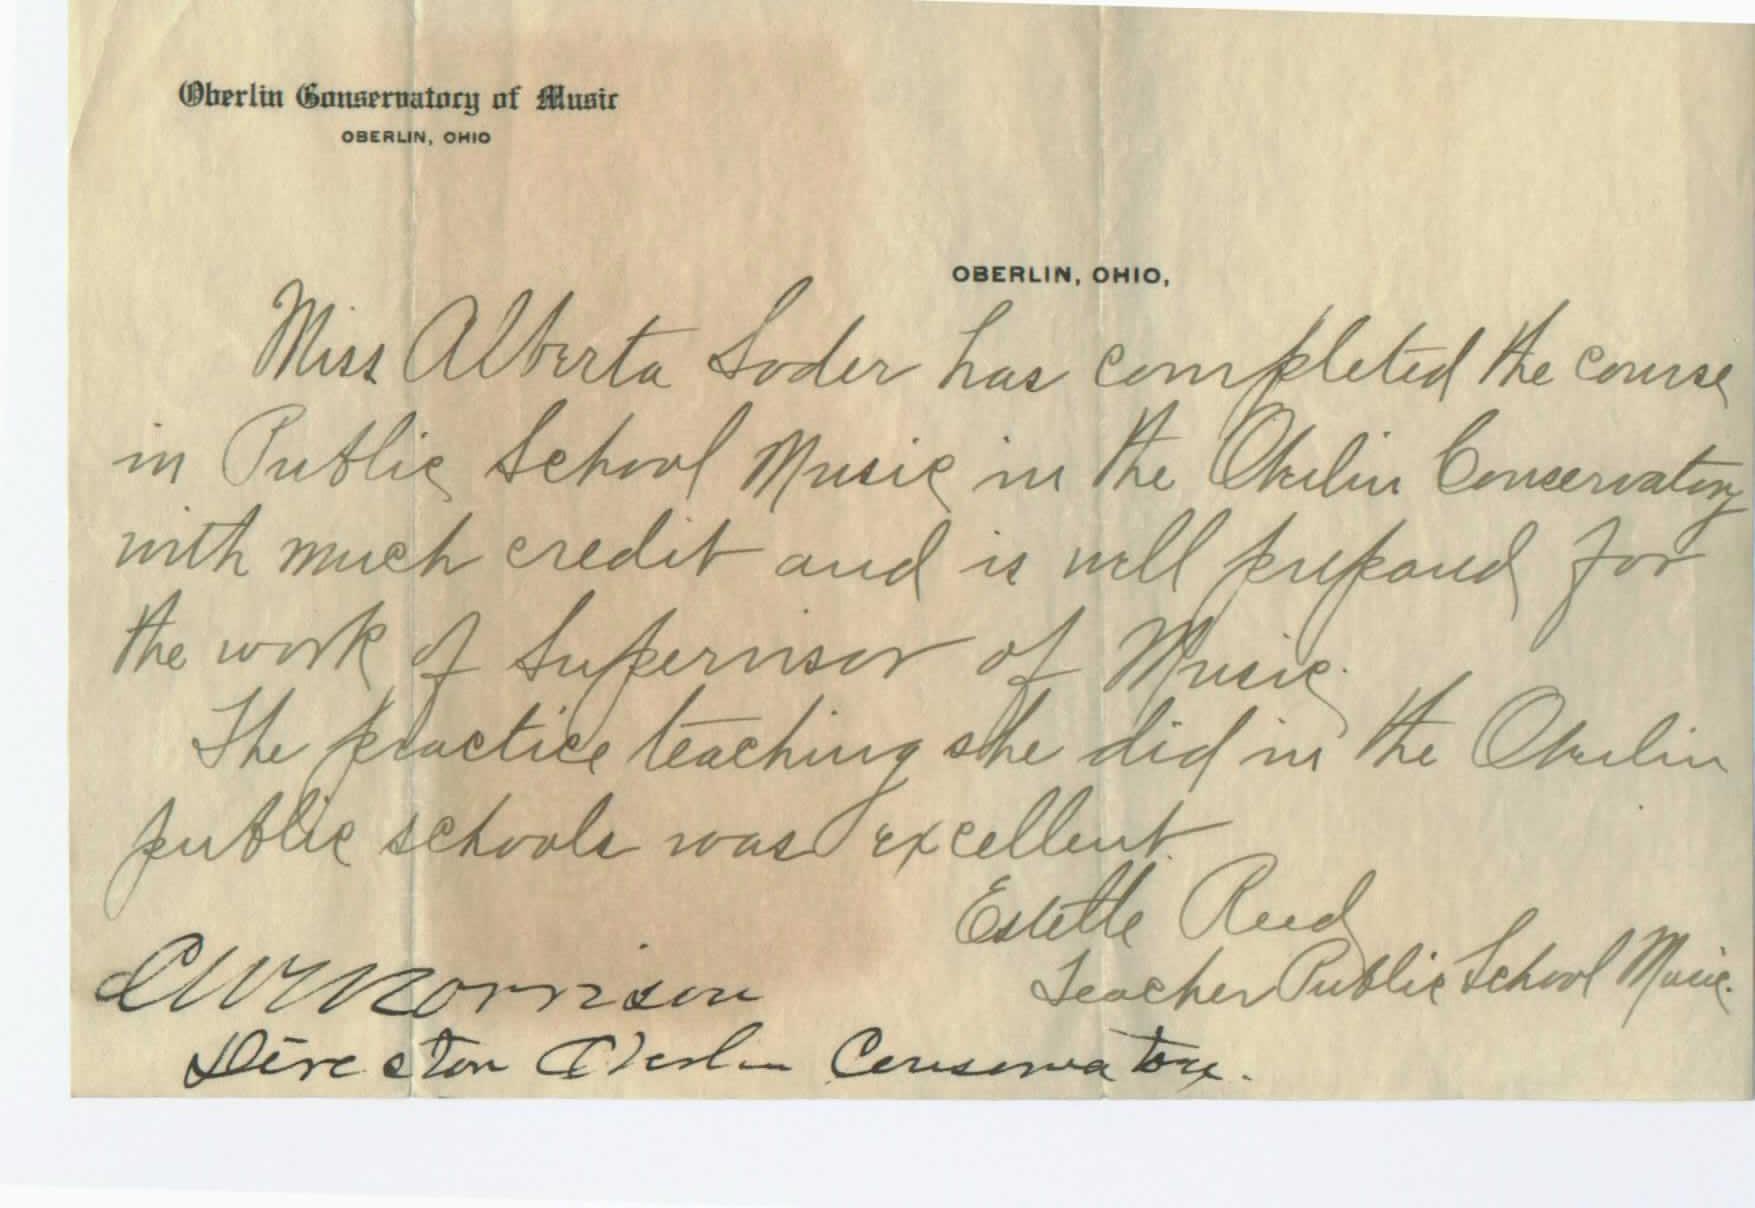 Oberlin Conservatory of Music
OBERLIN, OHIO
OBERLIN, OHIO,
Miss Alberta Soder has completed the course
in Public School Music in the Oberlin Conservatory
with much credit and is well prepared for
the work of Supervisor of Music.
The practice teaching she did in the Oberlin
public schools was excellent
Estelle Reed
Teacher Public School Music.
C W Morrison
Director Oberlin Conservatory.